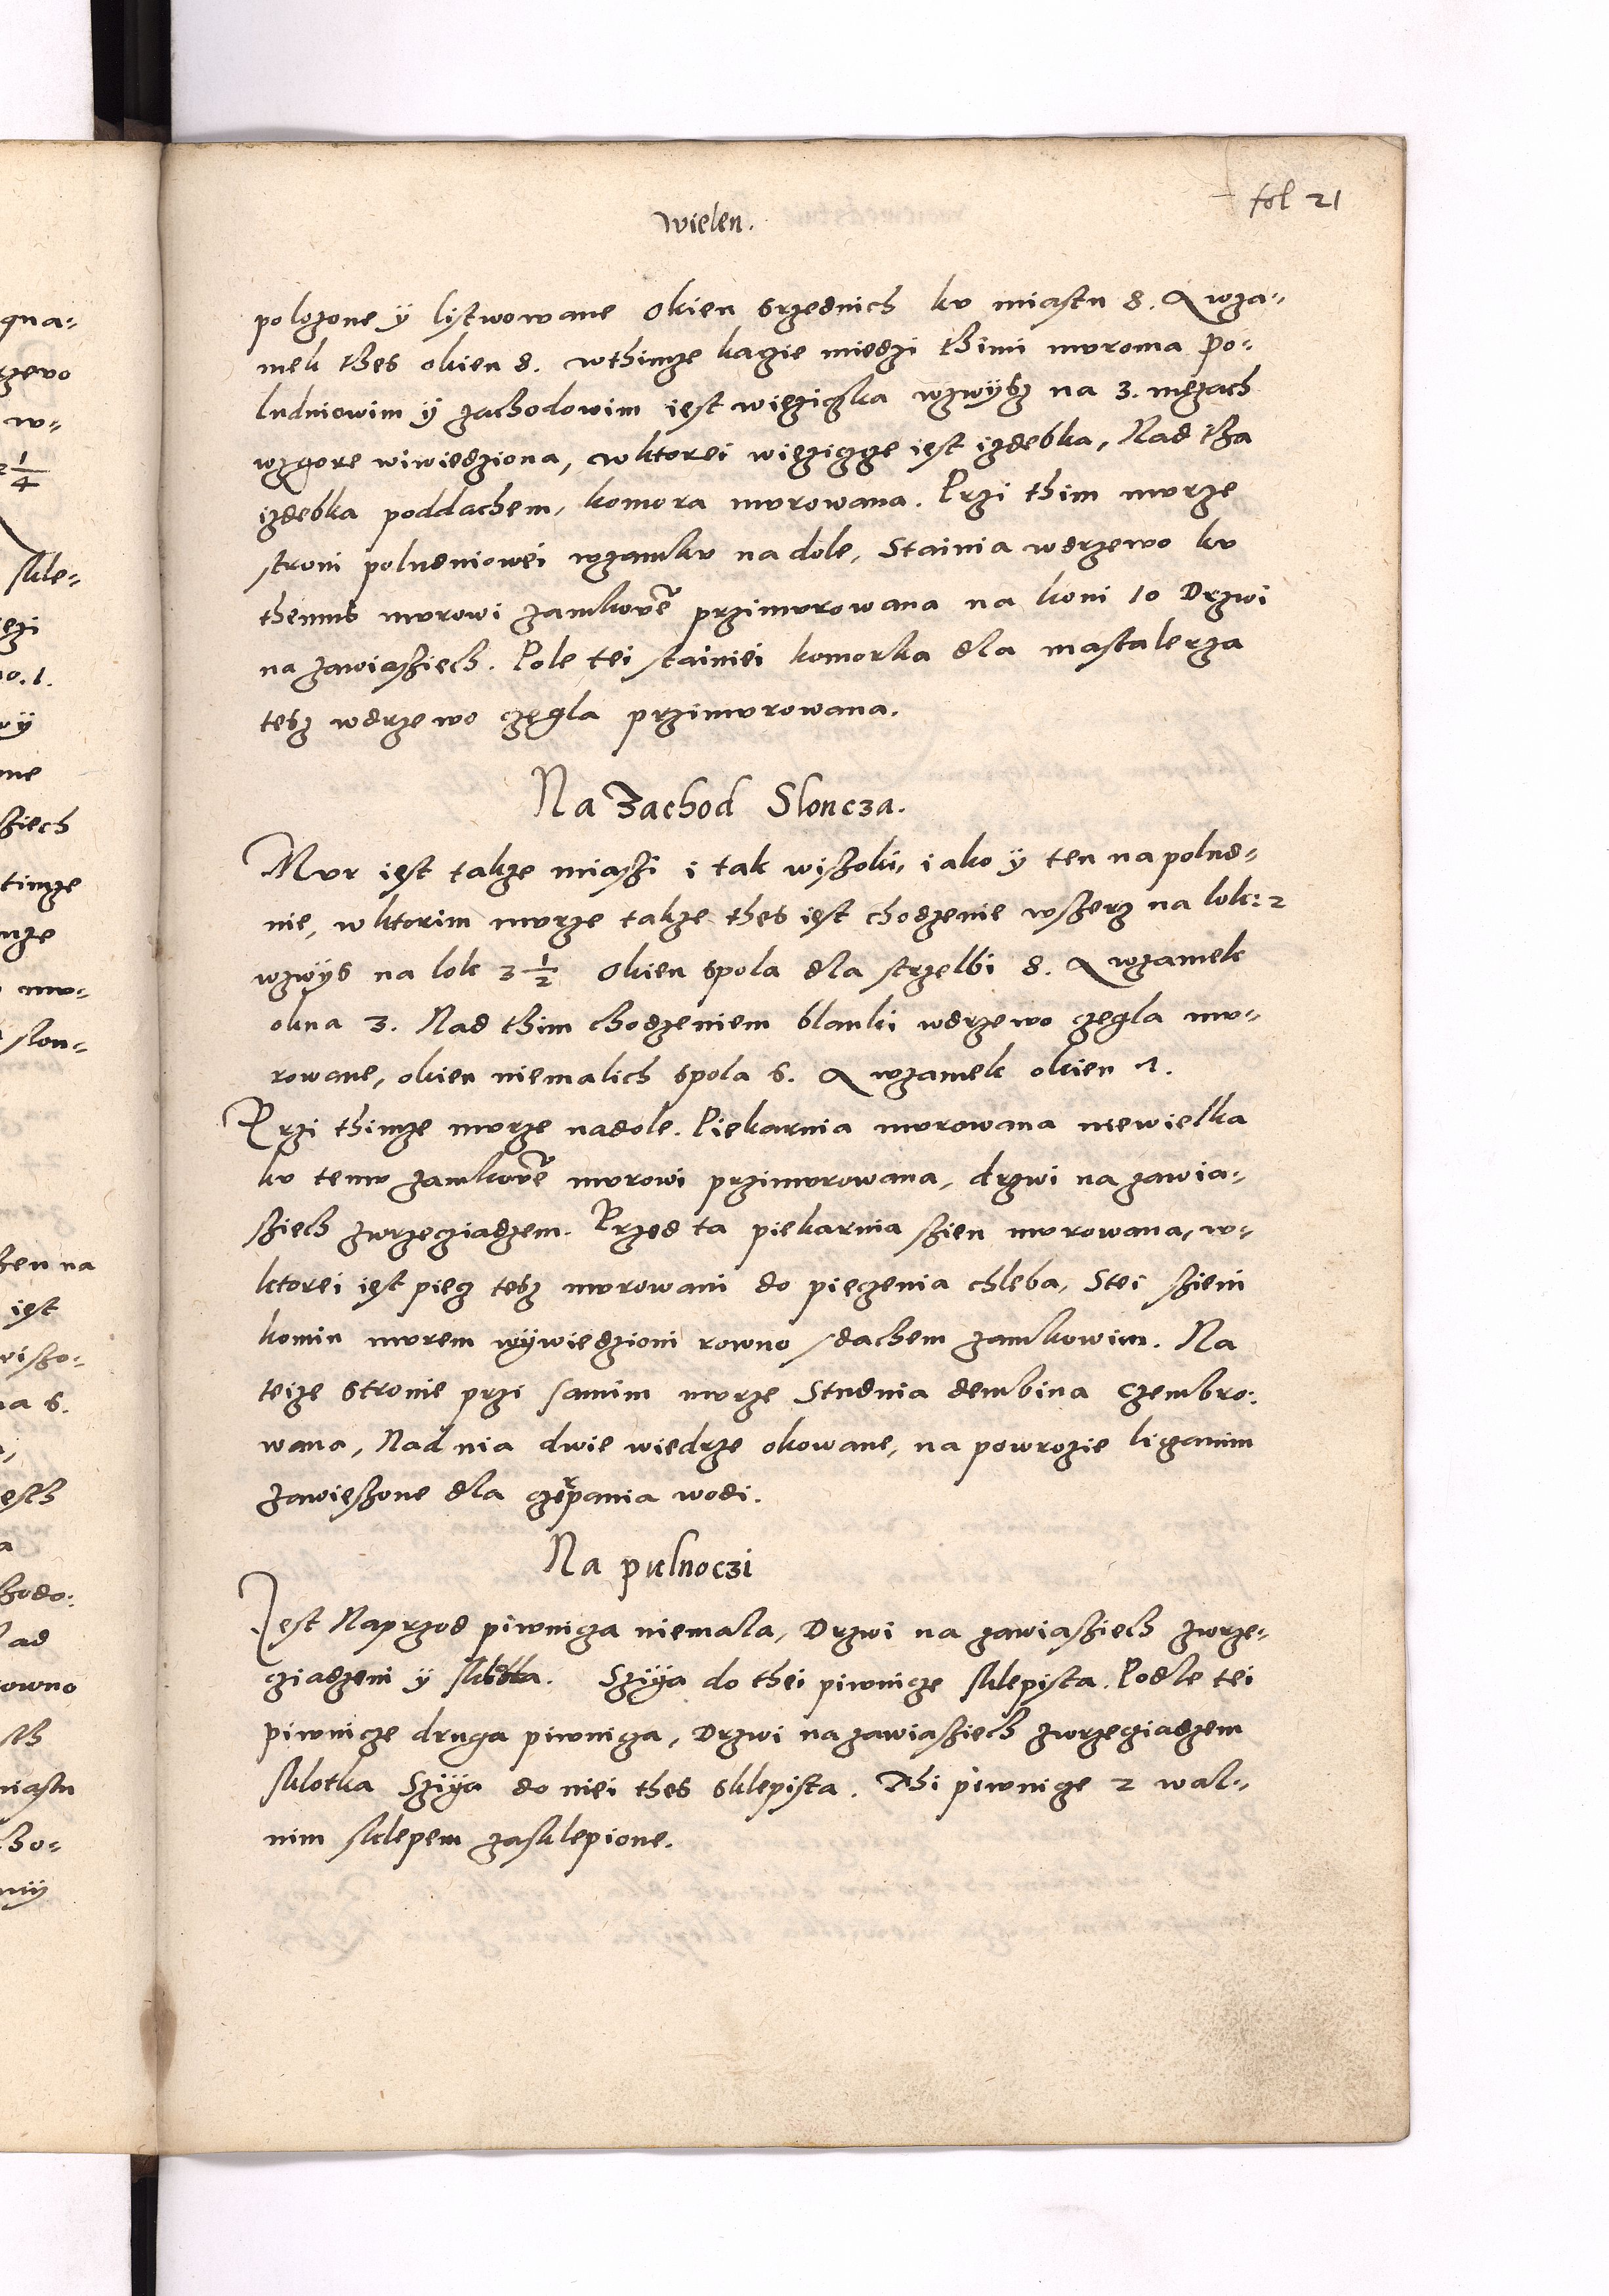 fol 21
Wielen.
polozone y listwowane Okien srzednich kv miastu 8. A wza-
mek thes okien 8. wthimze kacie miedzi thimi mvroma Po-
ludniowim y zachodowim iest wieziczka wzwysz na 3. mezach
wzgore wiwiedziona, w ktorei wieziczze iest izdebka, Nad tha
izdebka poddachem, komora mvrowana. Przi thim mvrze
stroni poludniowei wzamkv na dole, Stainia wdrzewo kv
themus mvrowi zamkovem przimvrowana na koni 10 Drzwi
na zawiasziech. Pole tei stainiei komorka dla mastalerza
tesz wdrzewo czegla przimvrowana.
Na Zachod Sloncza.
Mvr iest takze miaszi i tak wisoki, iako y ten na polud-
nie, w ktorim mvrze takze thes iest chodzenie wszerz na lok: 2
wzwys na lok 3 1/2 Okien spola dla strzelbi 8. A wzamek
okna 3. Nad thim chodzeniem blanki wdrzewo czegla mv-
rowane, okien niemalich spola 6. A wzamek okien 7.
Przi thimze mvrze nadole. Piekarnia mvrowana niewielka
kv temv zamkovem mvrowi przimvrowana, drzwi na zawia-
sziech zwrzecziadzem. Przed ta piekarnia szien mvrowana, w-
ktorei iest piecz tesz mvrowani do pieczenia chleba, Stei szieni
komin mvrem wywiedzioni rowno sdachem zamkowim. Na
teize stronie przi samim mvrze Studnia dembina Czembro-
wana, Nad nia dwie wiedrze okowane, na powrozie liczanim
zawieszone dla czerpania wodi.
Na pulnoczi
Jest Naprzod piwnicza niemala, Drzwi na zawiasziech zwrze-
cziadzem y sklotka. Szyia do thei piwnicze sklepista. Podle tei
piwnicze druga piwnicza, Drzwi na zawiasziech zwrzecziadzem
sklotka Szyia do niei thes sklepista. Thi piwnicze 2 wal-
nim sklepem zasklepione.